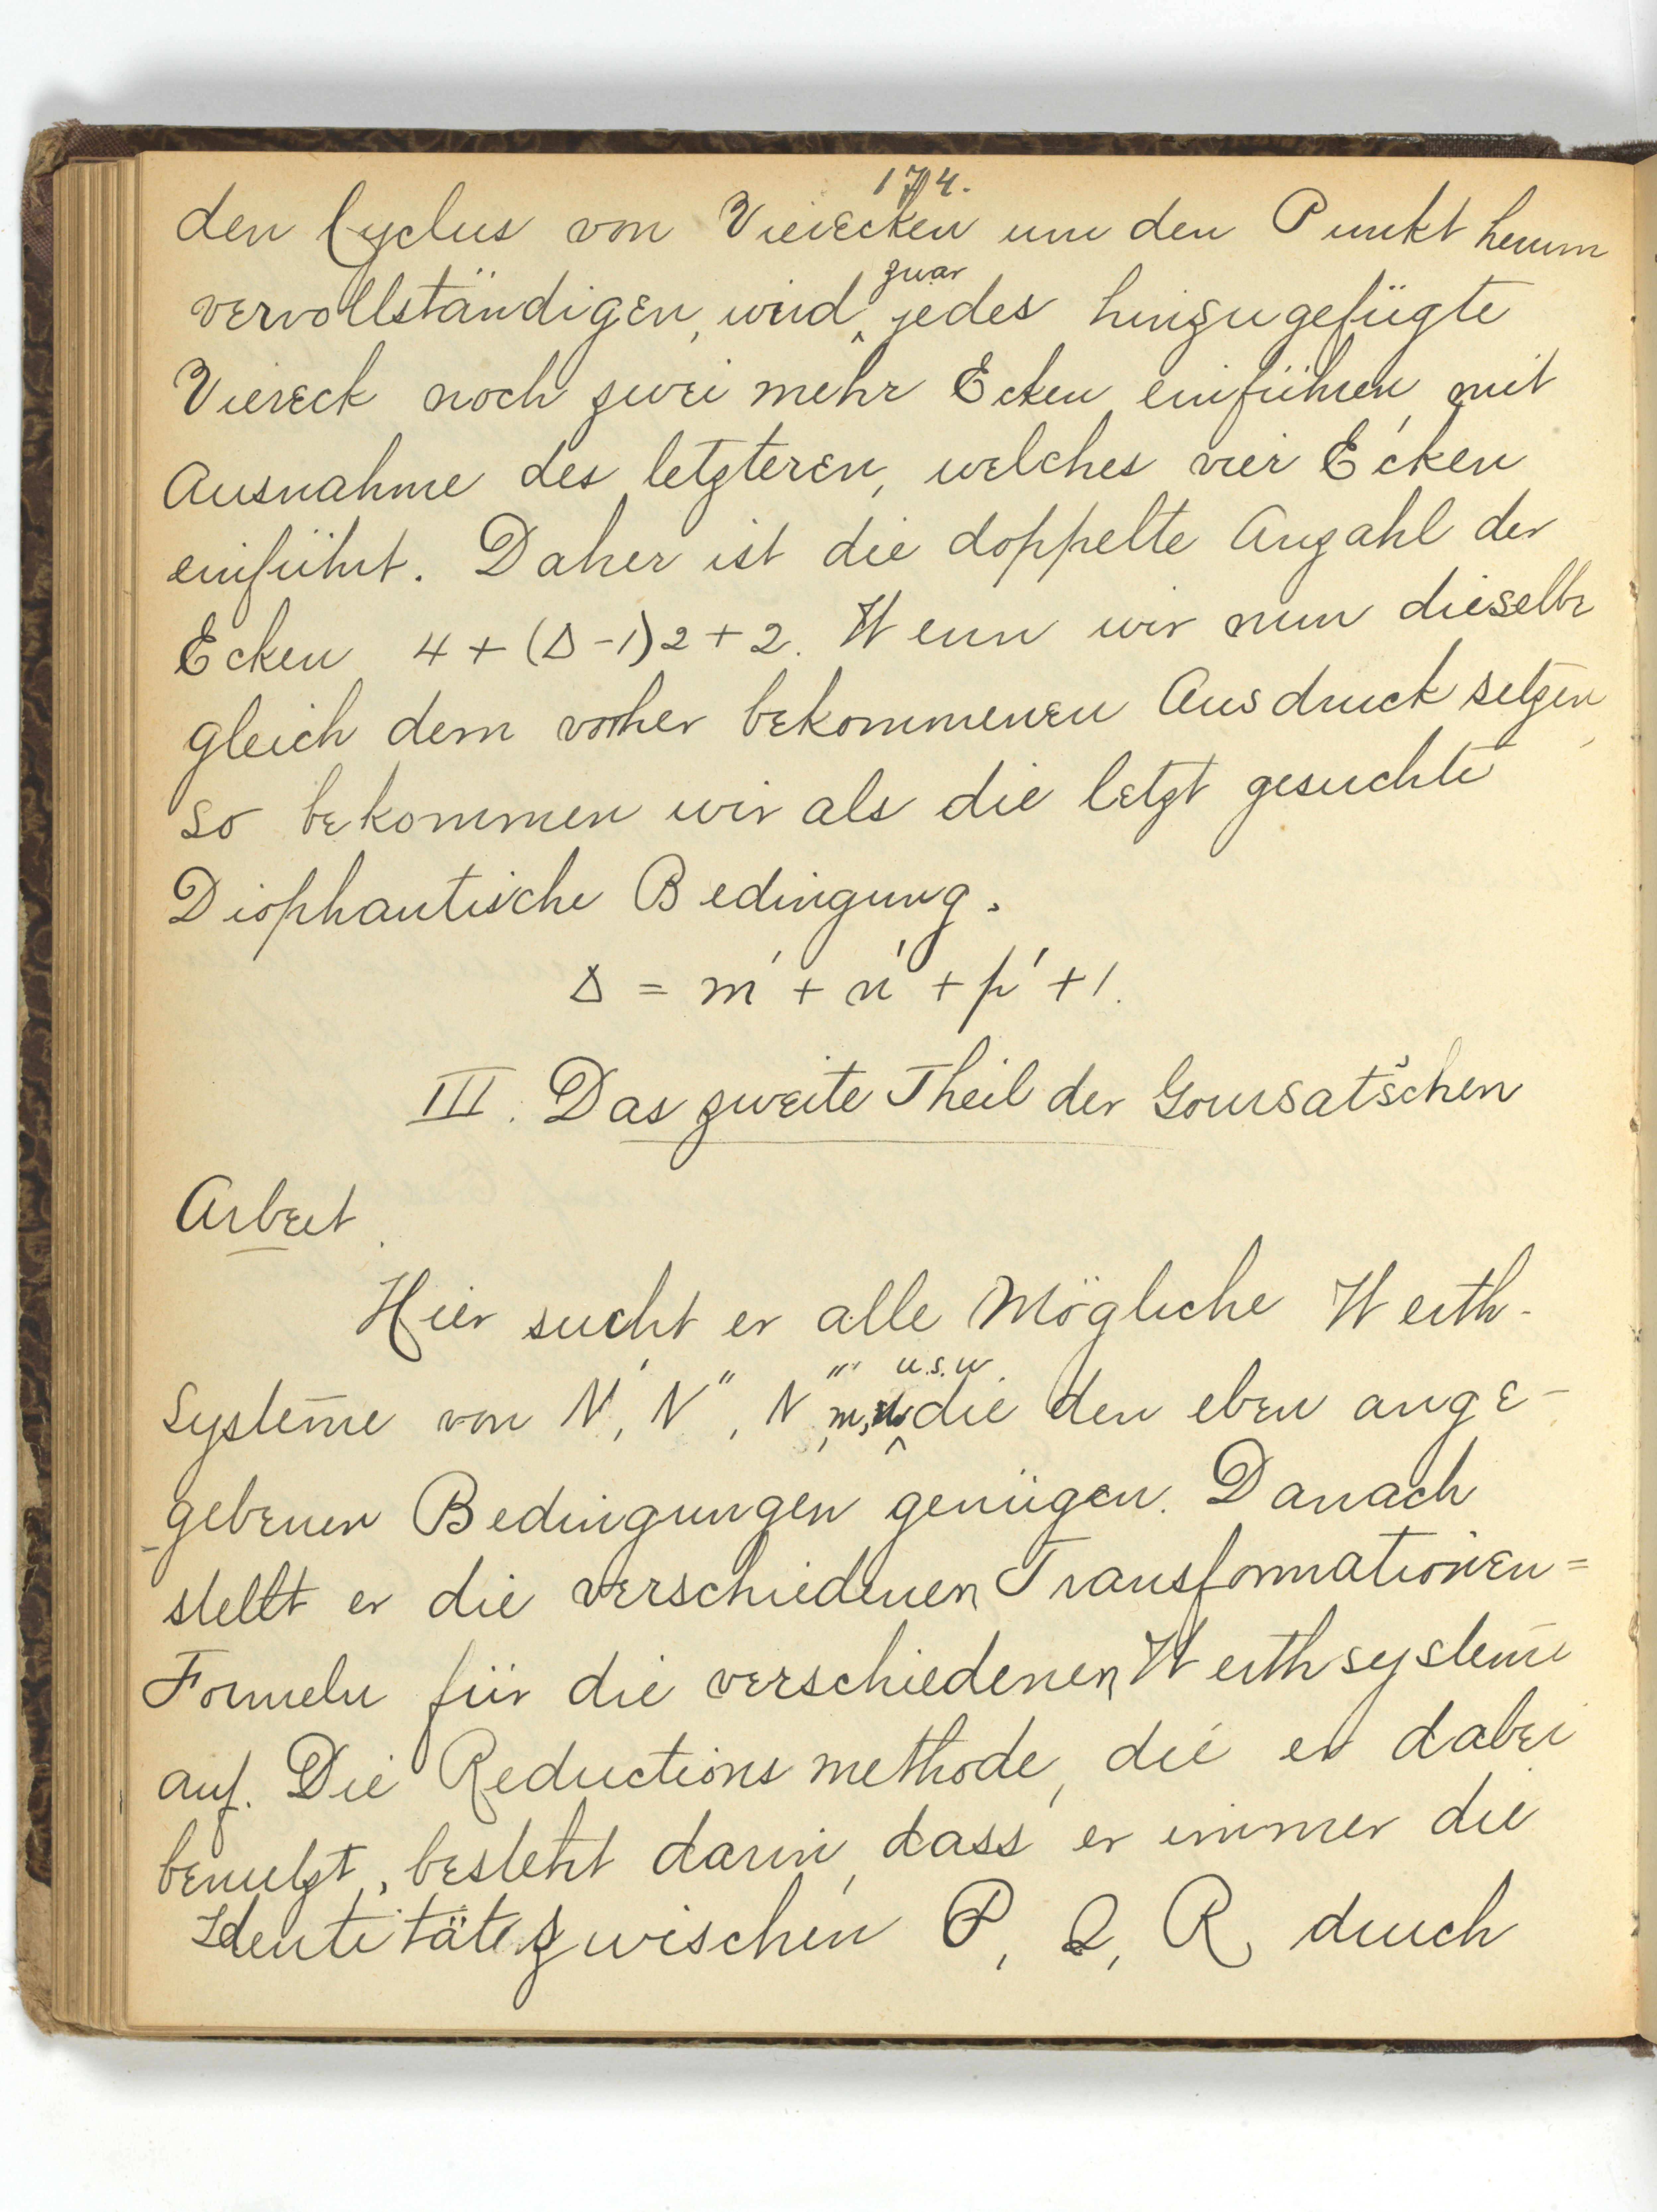 174.
den Cyclus von Vierecken um den Punkt herum
vervollständigen, wird zwar jedes hinzugefügte
Viereck noch zwei mehr Ecken einführen, mit
Ausnahme des letzteren, welches vier Ecken
einführt. Daher ist die doppelte Anzahl der
Ecken 4 + (Δ - 1)2 + 2. Wenn wir nun dieselbe
gleich dem vorher bekommenen Ausdruck setzen,
so bekommen wir als die letzt gesuchte
Diophantische Bedingung.
Δ = m' + n' + p' + 1.
III. Das zweite Theil der Goursat'schen
Arbeit.
Hier sucht er alle Mögliche Werth-
Systeme von N', N'', N''', m, n u.s.w die den eben ange-
gebenen Bedingungen genügen. Danach
stellt er die verschiedenen Transformationen=
Formeln für die verschiedenen Werthsysteme
auf. Die Reductionsmethode, die er dabei
benutzt, besteht darin, dass er immer die
Identität zwischen P, Q, R durch